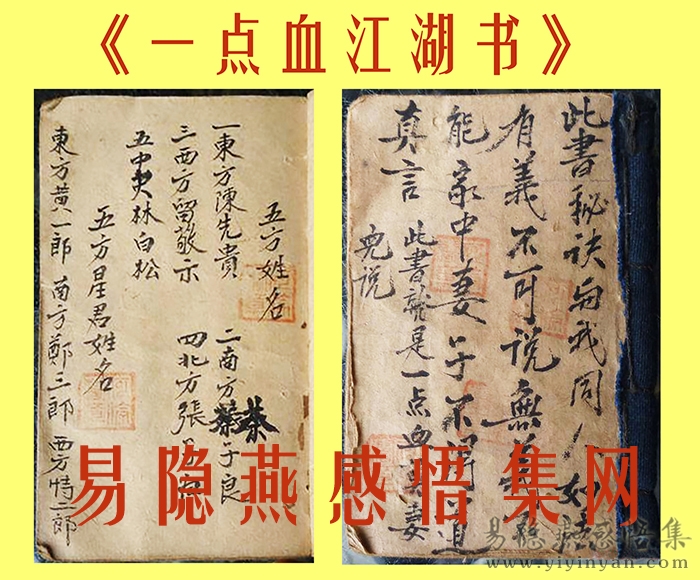 《一点血江湖书》
五方姓名
一東方陳先貴 二南方蔡子良
三西方留敬示 四北方張
五中央林白松
五方星君姓名
東方黄一郎 南方鄭三郎 西方特二郎
此書秘訣与我同
有義不可说無
能家中妻子不 道
真言 此書就是一点血 妻
兜说
易隐燕感悟集网
易隐燕感悟集
www.yiyinyan.com